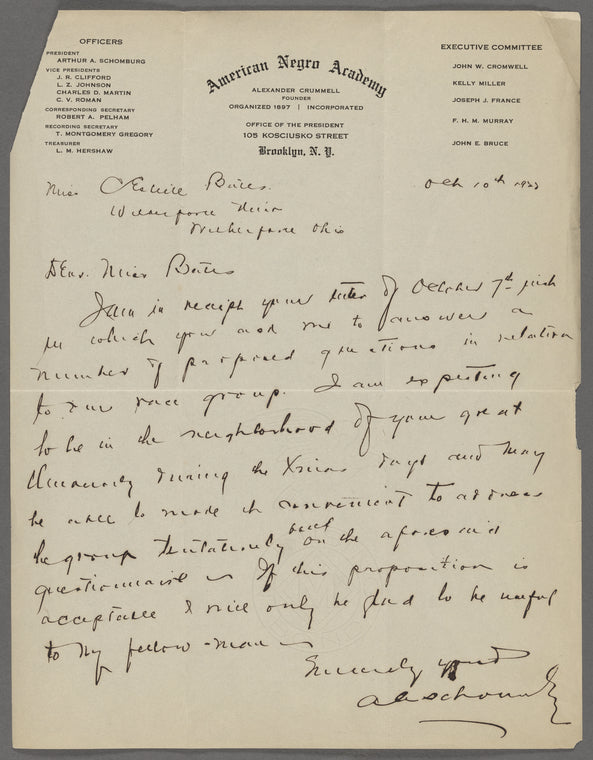 OFFICERS
PRESIDENT
ARTHUR A. SCHOMBURG
VICE PRESIDENTS
J. R. CLIFFORD
L. Z. JOHNSON
CHARLES D. MARTIN
C. V. ROMAN
CORRESPONDING SECRETARY
ROBERT A. PELHAM
RECORDING SECRETARY
T. MONTGOMERY GREGORY
TREASURER
L. M. HERSHAW
American Negro Academy
ALEXANDER CRUMMELL
FOUNDER
ORGANIZED 1897 | INCORPORATED
OFFICE OF THE PRESIDENT
105 KOSCIUSKO STREET
Brooklyn, N. Y.
EXECUTIVE COMMITTEE
JOHN W. CROMWELL
KELLY MILLER
JOSEPH J. FRANCE
F. H. M. MURRAY
JOHN E. BRUCE
Oct 10th
Miss Bates
Wilberforce Univ
Wilberforce Ohio
Dear Miss Bates
I am in receipt your letter of October 7th inst
in which you ask me to answer a
number of proposed questions in relation
to our race group. I am expecting
to be in the neighborhood of your great
University during the Xmas days and may
be able to make it convenient to address
the group tentatively on the aforesaid
questionnaire If this proposition is
acceptable I will only be glad to be useful
to my fellow-man
Sincerely yours
A A Schomburg